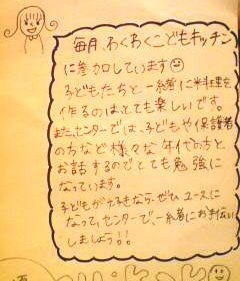 毎月、わくわくこどもキッチン
に参加しています
子どもたちと一緒に料理を
作るのはとても楽しいです。
また、センターでは、子どもや保護者
の方など様々な年代の方と
お話するのでとても勉強に
なっています。
子どもがすきなら、ぜひ ユースに
なって、センターで、一緒にお手伝い
しましょう!!